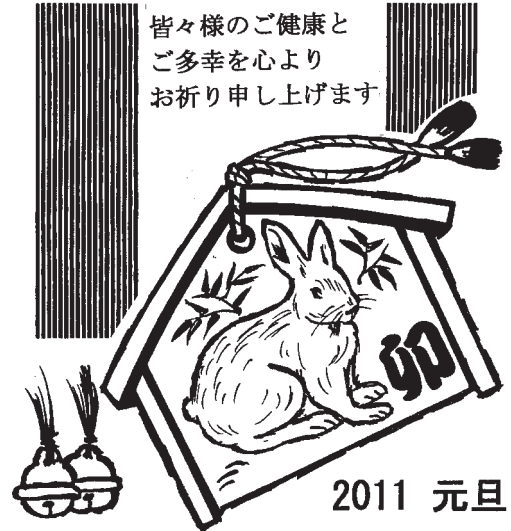 皆々様のご健康と
ご多幸を心より
お祈り申し上げます
卯
2011 元旦